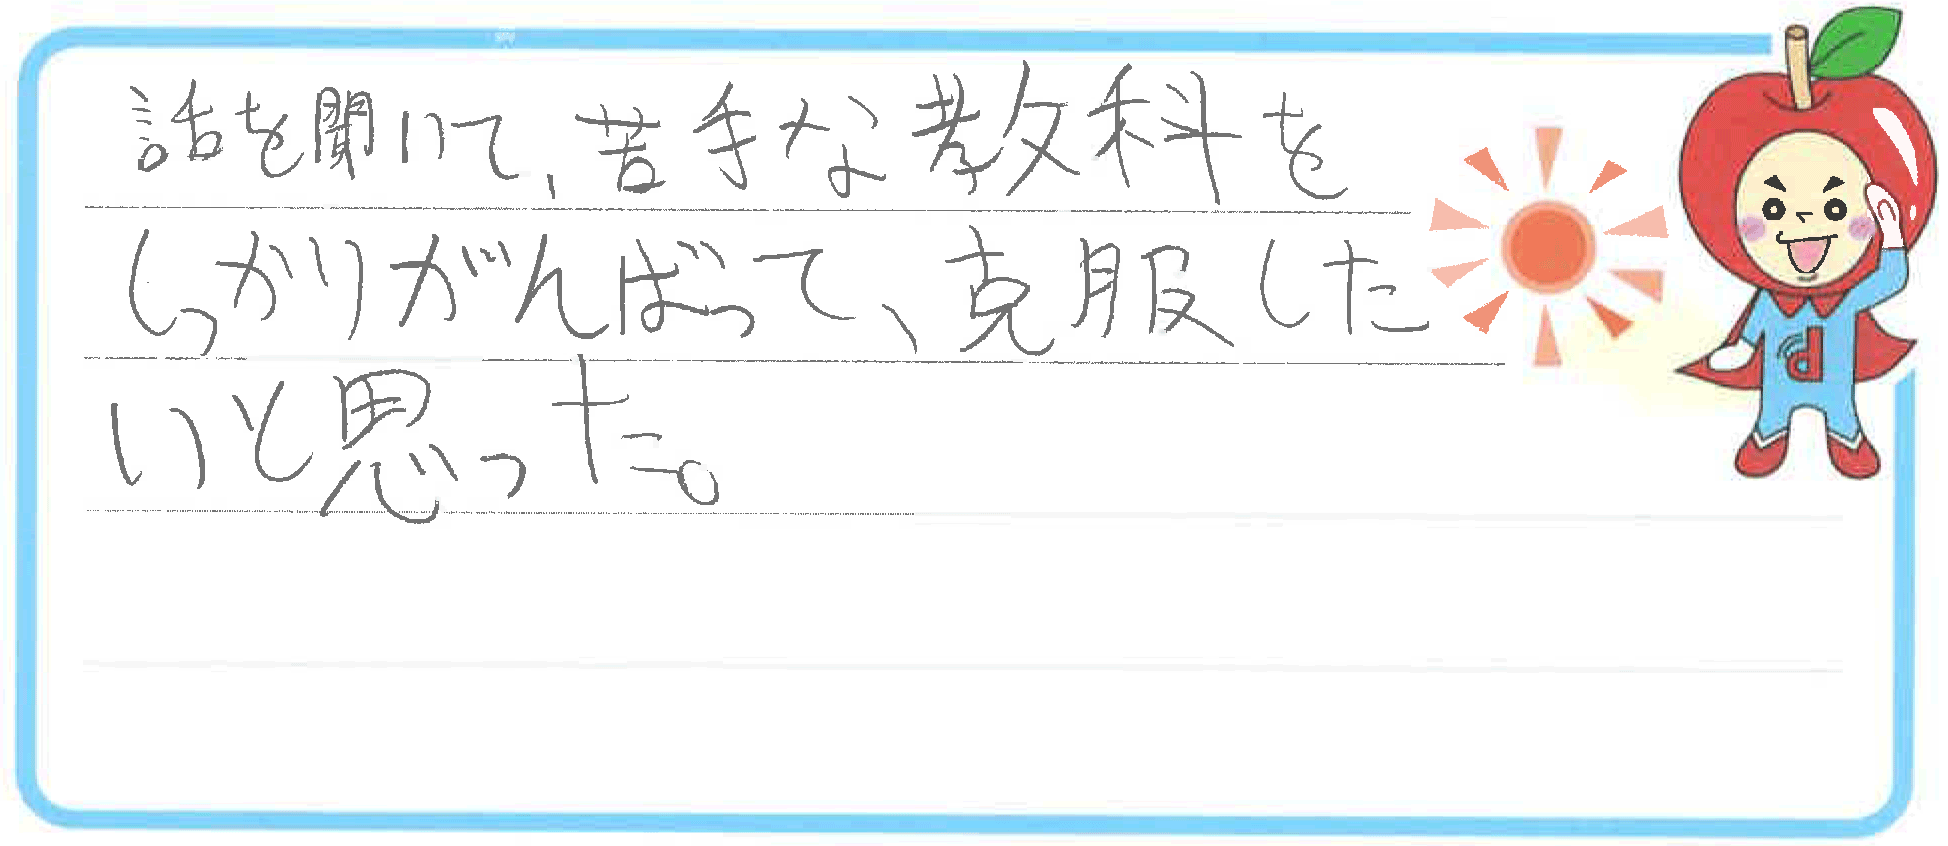 話を聞いて、苦手な教科を
しっかりがんばって、克服した
いと思った。